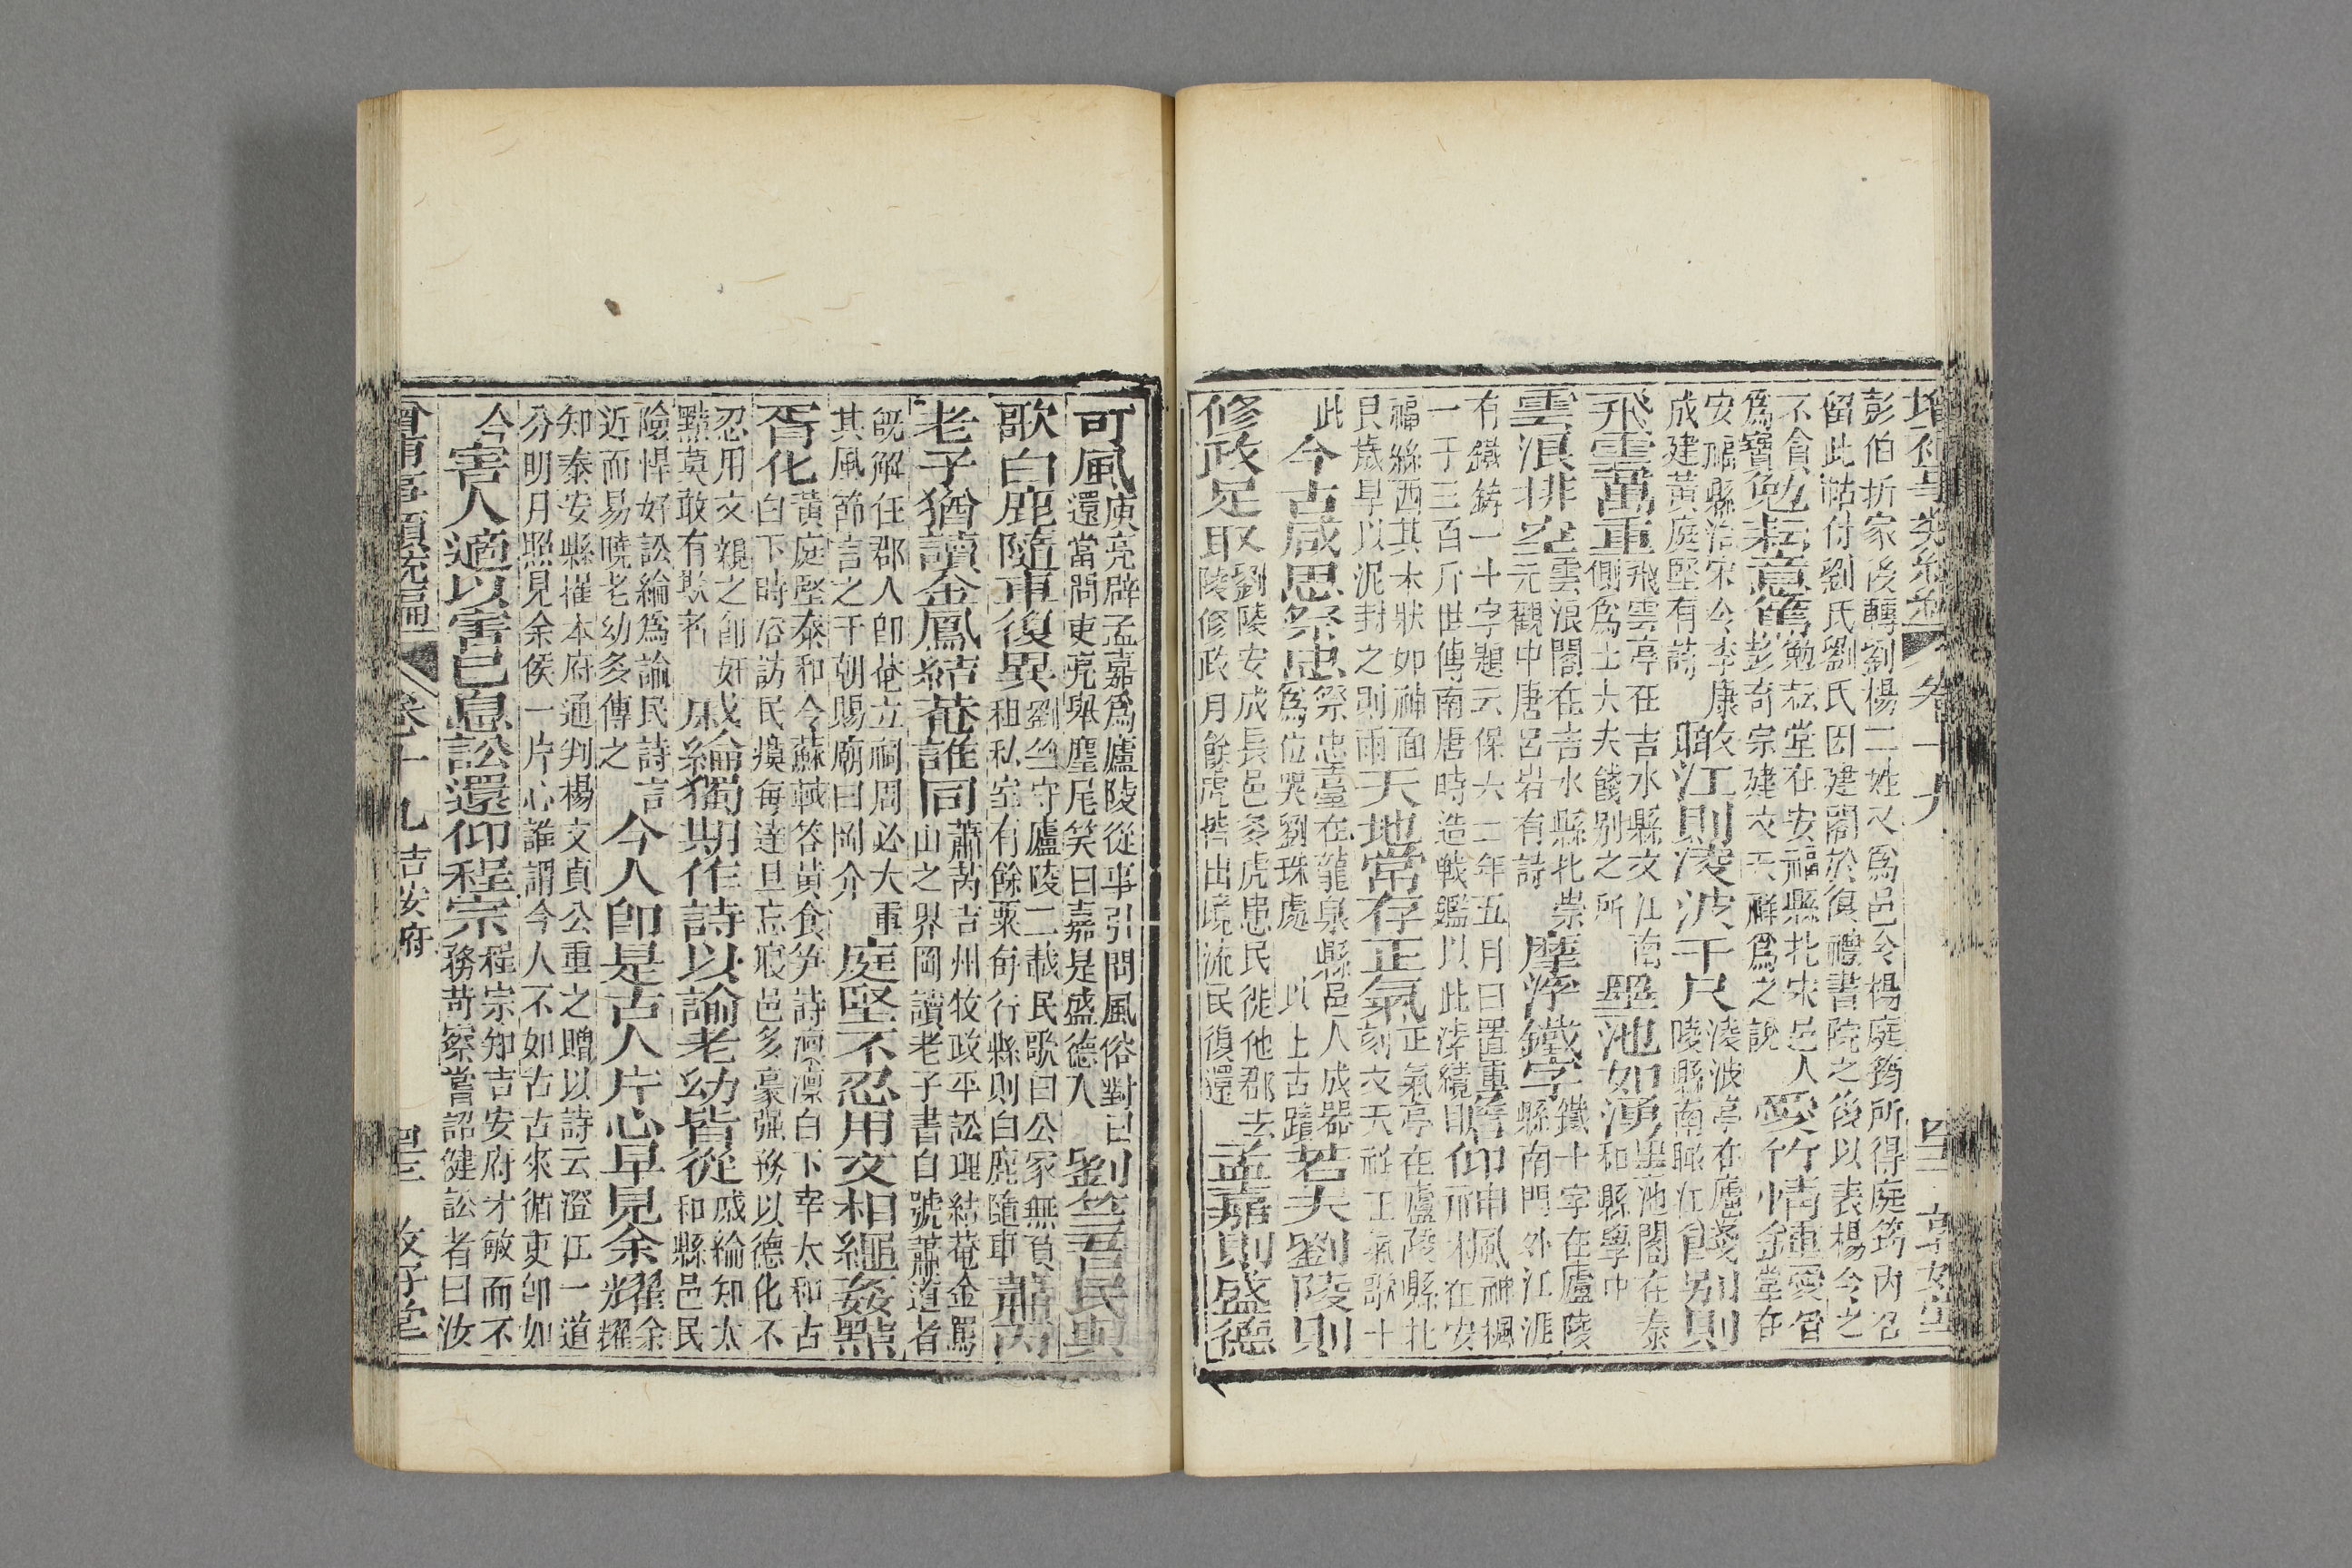 增補事類統編 卷十九
彭伯折家後轉劉楊二姓又爲邑令楊庭筠所得庭筠內召
留此帖付劉氏劉氏因建閣於復禮書院之後以表楊令之
不貪勉耘意舊勉耘堂在安福縣北宋邑人愛竹情鍾愛竹堂在
爲寶彭奇宗建文天祥爲之說
安福縣治宋令李康
成建黃庭堅有詩瞰江則淩波千尺淩波亭在廬陵縣南瞰江餞別則
飛雲萬重飛雲亭在吉水縣文江南側爲士大夫餞别之所墨池如湧墨池閣在泰和縣學中
雲浪排空雲浪閣在吉水縣北崇元觀中唐呂岩有詩摩滓鐵字鐵十字在廬陵縣南門外江涯
有鐵鑄一十字題云保大二年五月日置重
一千三百斤世傳南唐時造戰艦以此漆纜瞻仰神楓神楓在安
福縣西其木狀如神面
艮歲旱以泥封之則雨天地常存正氣正氣亭在廬陵縣北刻文天祥正氣歌十
此今古咸思祭忠祭忠臺在龍泉縣邑人成器爲位哭劉球處以上古蹟若夫劉陵則
修政足取劉陵安成長邑多虎患民徙他郡去陵修政月餘虎皆出境流民復還孟嘉則盛德
可風庾亮辟孟嘉爲廬陵從事引問風俗對曰還當問吏亮舉麈尾笑曰嘉是盛德人劉竺君民與
歌白鹿隨車復異劉竺守廬陵二載民歌曰公家無負租私室有餘粟每行縣則白鹿隨車蕭丙
老子猶讀金鳳結菴誰同蕭芮吉州牧政平訟理結菴金鳳山之界岡讀老子書自號蕭道者
旣解任郡人卽菴立祠周必大重
其風節言之于朝賜廟曰岡介庭堅不忍用文相繩姦點
胥化黃庭堅泰和令蘇軾答黃食笋詩洞凜白下宰太和古白下時俗訪民瘼每達旦忘寢邑多豪强務以德化不
忍用文親之卽奸
黠莫敢有欺者戚綸獨期作詩以諭老幼皆從戚綸知太和縣邑民
險悍好訟綸爲諭民詩言
近而易曉老幼多傳之今人卽是古人片心早見余耀余光耀
知泰安縣擢本府通判楊文貞公重之贈以詩云澄江一道
分明月照見余侯一片心誰謂今人不如古古來循吏卽如
今害人適以害已息訟還仰程宗程宗知吉安府才敏而不務苛察嘗詔健訟者曰汝
卷十九 吉安府 敦好堂